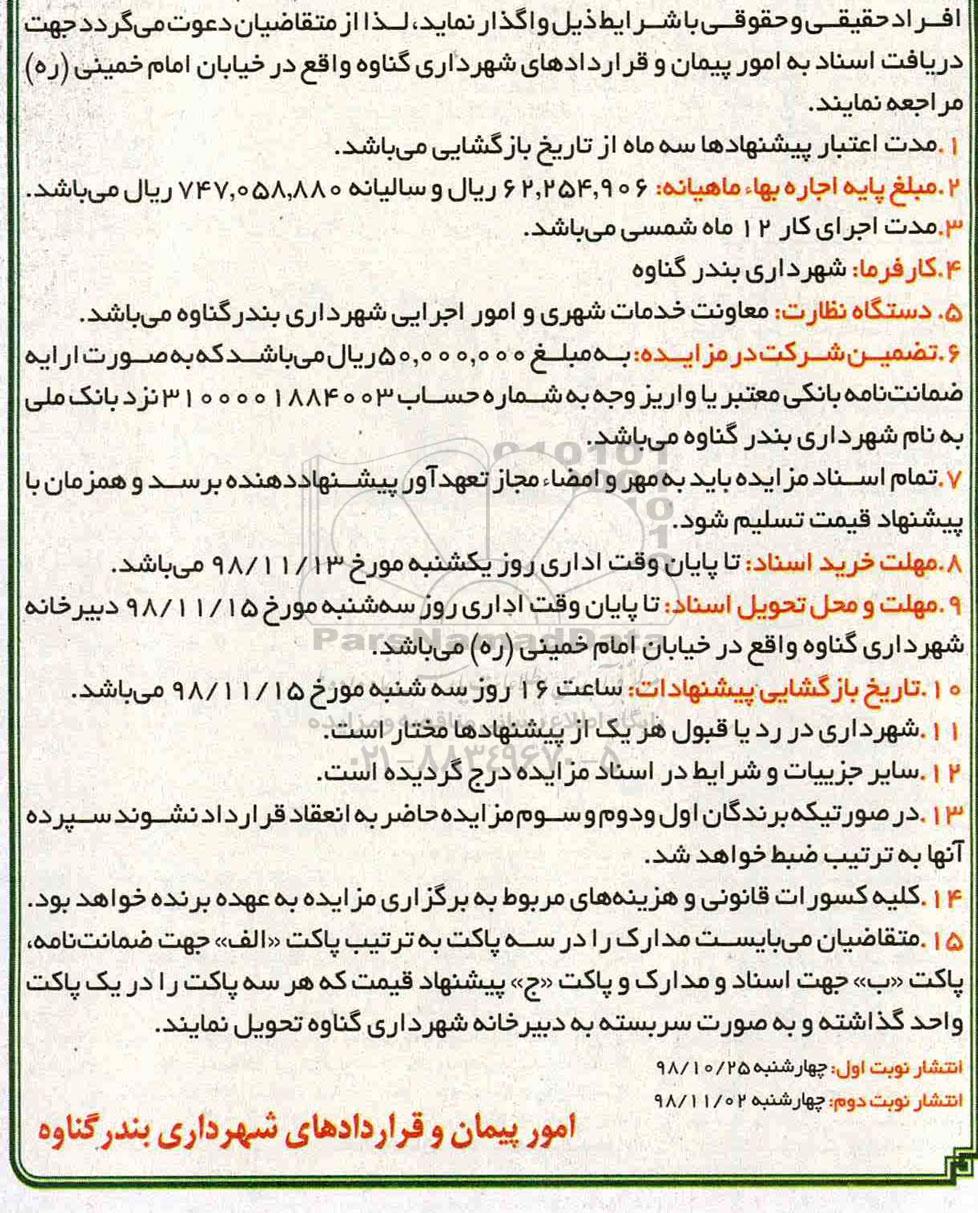 افراد حقیقی و حقوقی با شرایط ذیل واگذار نماید، لذا از متقاضیان دعوت می‌گردد جهت
دریافت اسناد به امور پیمان و قراردادهای شهرداری گناوه واقع در خیابان امام خمینی (ره)
مراجعه نمایند.
۱.مدت اعتبار پیشنهادها سه ماه از تاریخ بازگشایی می‌باشد.
۲.مبلغ پایه اجاره بهاء ماهیانه: ۶۲,۲۵۴,۹۰۶ ریال و سالیانه ۷۴۷,۰۵۸,۸۸۰ ریال می‌باشد.
۳.مدت اجرای کار ۱۲ ماه شمسی می‌باشد.
۴.کارفرما: شهرداری بندر گناوه
۵. دستگاه نظارت: معاونت خدمات شهری و امور اجرایی شهرداری بندرگناوه می‌باشد.
۶.تضمین شرکت در مزایده: به مبلغ ۵۰,۰۰۰,۰۰۰ریال می‌باشد که به صورت ارایه
ضمانت‌نامه بانکی معتبر یا واریز وجه به شماره حساب ۳۱۰۰۰۰۱۸۸۴۰۰۳ نزد بانک ملی
به نام شهرداری بندر گناوه می‌باشد.
۷.تمام اسناد مزایده باید به مهر و امضاء مجاز تعهدآور پیشنهاددهنده برسد و همزمان با
پیشنهاد قیمت تسلیم شود.
۸.مهلت خرید اسناد: تا پایان وقت اداری روز یکشنبه مورخ ۹۸/۱۱/۱۳ می‌باشد.
۹.مهلت و محل تحویل اسناد: تا پایان وقت اداری روز سه‌شنبه مورخ ۹۸/۱۱/۱۵ دبیرخانه
شهرداری گناوه واقع در خیابان امام خمینی (ره) می‌باشد.
ParsNamadData
۱۰.تاریخ بازگشایی پیشنهادات: ساعت ۱۶ روز سه شنبه مورخ ۹۸/۱۱/۱۵ می‌باشد.
پایگاه اطلاع رسانی مناقصه و مزایده
۱۱.شهرداری در رد یا قبول هر یک از پیشنهادها مختار است.
۰۲۱-۸۸۳۴۹۶۷۰-۵
۱۲.سایر جزییات و شرایط در اسناد مزایده درج گردیده است.
۱۳.در صورتیکه برندگان اول ودوم و سوم مزایده حاضر به انعقاد قرارداد نشوند سپرده
آنها به ترتیب ضبط خواهد شد.
۱۴.کلیه کسورات قانونی و هزینه‌های مربوط به برگزاری مزایده به عهده برنده خواهد بود.
۱۵.متقاضیان می‌بایست مدارک را در سه پاکت به ترتیب پاکت «الف» جهت ضمانت‌نامه،
پاکت «ب» جهت اسناد و مدارک و پاکت «ج» پیشنهاد قیمت که هر سه پاکت را در یک پاکت
واحد گذاشته و به صورت سربسته به دبیرخانه شهرداری گناوه تحویل نمایند.
انتشار نوبت اول: چهارشنبه ۹۸/۱۰/۲۵
انتشار نوبت دوم: چهارشنبه ۹۸/۱۱/۰۲
امور پیمان و قراردادهای شهرداری بندرگناوه